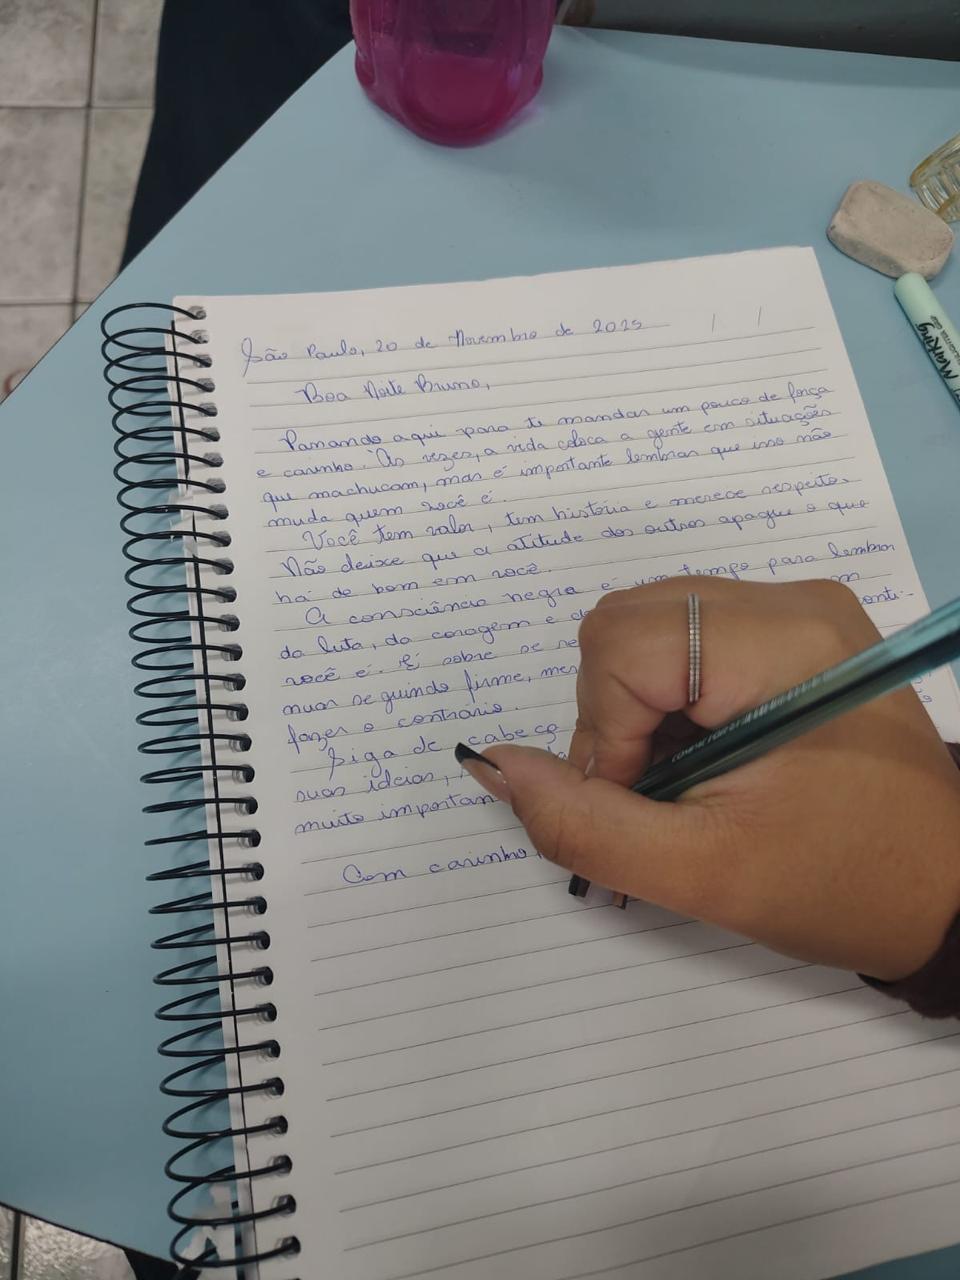 São Paulo, 20 de Novembro de 2025
Boa Noite Bruno,
Passando aqui para te mandar um pouco de força
e carinho. Às vezes, a vida coloca a gente em situações
que machucam, mas é importante lembrar que isso não
muda quem você é.
Você tem valor, tem história e merece respeito.
Não deixe que a atitude dos outros apague o que
há de bom em você.
A consciência negra é um tempo para lembrar
da luta, da coragem e
você é. É sobre se
nuar seguindo firme,
fazer o contrário.
Siga de cabeça
suas ideias,
muito
Com carinho,
Marking
COMPACTOR